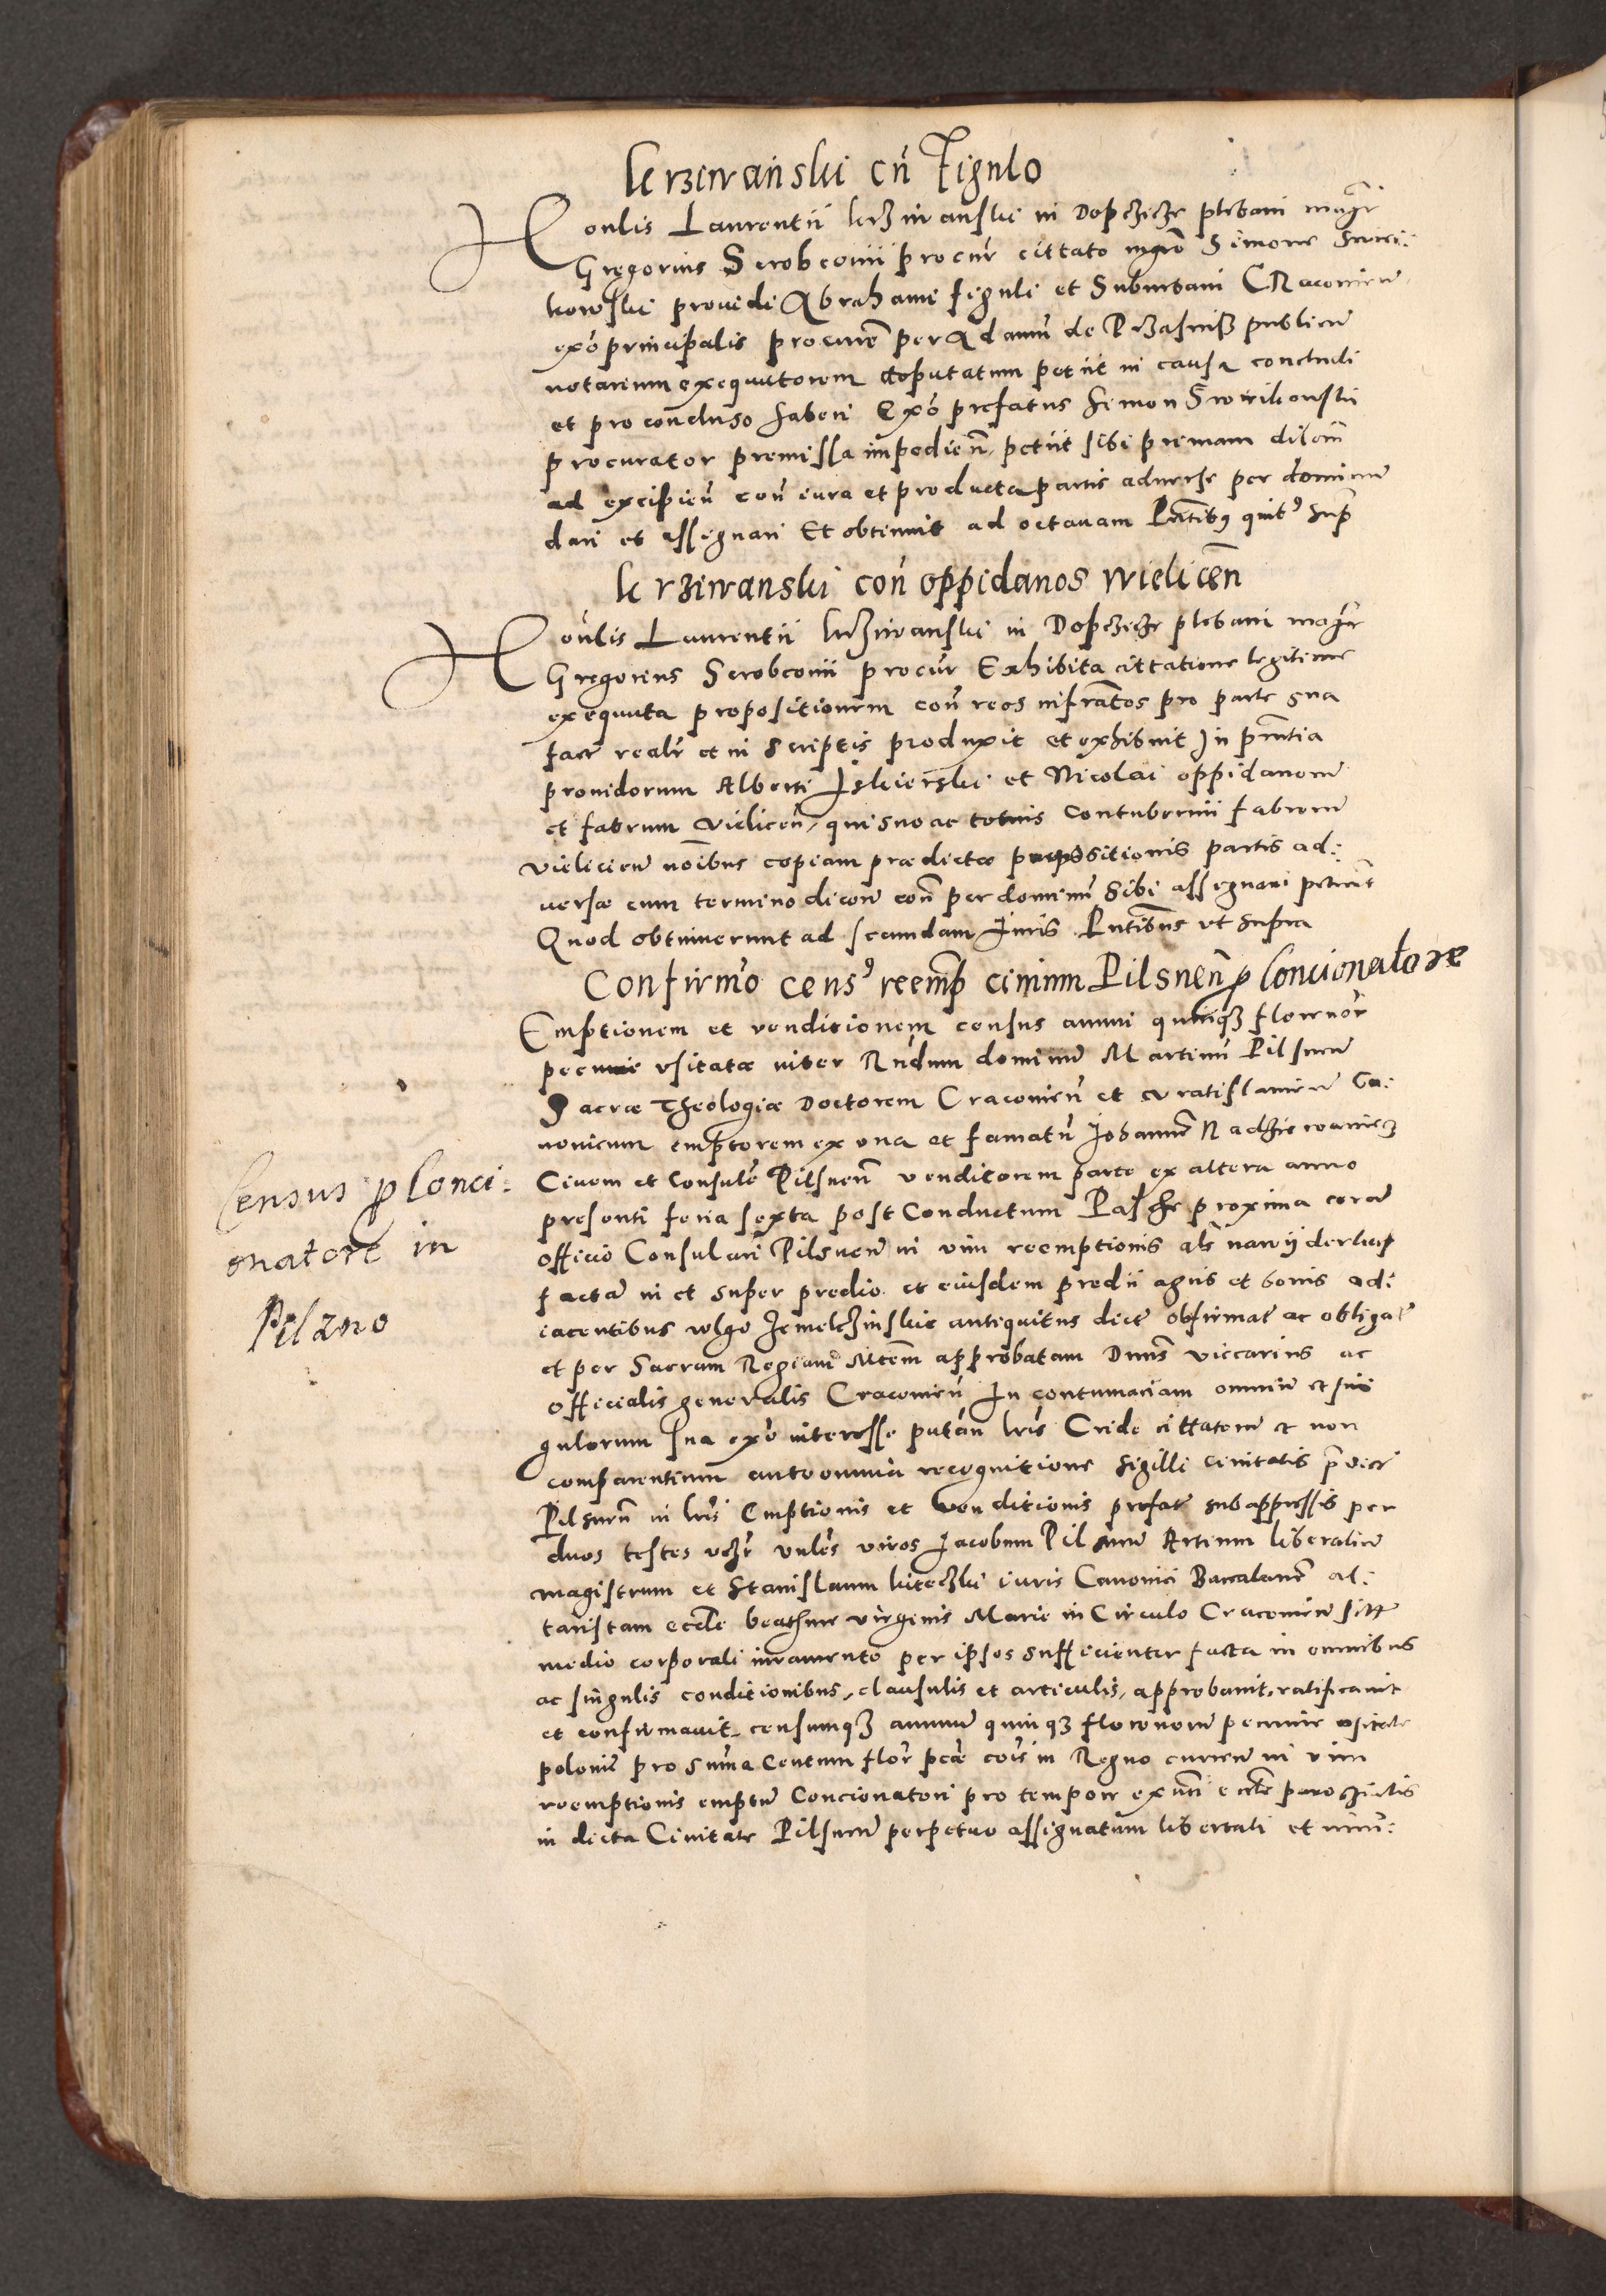 krziwanski cū Figulo
Honlis Laurentii krziwanski in Dopcziche plebani magr
Gregorius Serobconii procur cittato mgro Simone Swiri:
kowski providi Abrahami figuli et Suburbani Cracovien
exo principalis procure per Adamū de Przasnisz publicū
notarium exequutorem deputatum petiit in causa concludi
et pro concluso haberi Exo prefatus Simon Swirikowski
procurator premissa impedien, petiit sibi primam dilom
ad excipien con iura et producta partis adverse per dominū
dari et assignari Et obtinuit ad octavam Pntibus quibus supra
krziwanski con oppidanos wielicen
Honlis Laurentii krziwanski in Dopcziche plebani magr
Gregorius Serobconii procur Exhibita cittatione legitime
exequuta propositionem con reos infratos pro parte sua
facr realr et in scriptis produxit et exhibuit In pntia
providorum Alberti et Nicolai oppidanorū
et fabrum vielicen, qui suo ac totius Contubernii fabrorū
vielicien noibus copiam prædictæ propositionis partis ad:
versæ cum termino dicen con per dominū sibi assignari petiert
Quod obtinuerunt ad secundam Iuris Pntibus ut supra
Confirmo cens9 reemp civium Pilsnen p Concionatore
Emptionem et venditionem census annui quinq3 florenor
pecuniæ usitatæ inter Rndum dominū Martinū Pilsnen
Sacræ Theologiæ Doctorem Cracovien et wratislavien Ca:
nonicum emptorem ex una et famatū Johannē
Civem et Consulē Pilsnen venditorem parte ex altera anno
presenti feria sexta post Conductum Paschæ proxima corā
officio Consulari Pilsnen in vim reemptionis als na wyderkup
factā in et super predio et eiusdem predii agris et bonis ad:
iacentibus vulgo antiquitus dict obfirmat ac obligat
et per Sacram Regiam Mtem approbatam Dnus viccarius ac
officialis generalis Cracovien In contumaciam omnium et sin
gulorum sua exo interesse putan lris Cride cittatorū et non
comparentium ante omnia recognitione sigilli civitatis pdict
Pilsnen in lris Emptionis et Venditionis prefat subappressis per
duos testes vczr vnles viros Jacobum Pilsnen Artium liberaliū
magistrum et Stanislaum iuris Canonici Baccalaurē al:
taristam eccle beatissime virginis Marie in Circulo Cracovien sitt
medio corporali iuramento per ipsos sufficienter facta in omnibus
ac singulis conditionibus, clausulis et articulis, approbavit, ratificavit
et confirmavit censumq3 annuū quinq3 florenorū pecunie usitate
polonie pro suma Centum flor pcæ cois in Regno curren in vim
reemptionis emptū Concionatori pro tempore exnti eccle parochialis
in dicta Civitate Pilsnen perpetuo assignatum libertati et imu:
Census p Conci:
onatore in
Pilzno